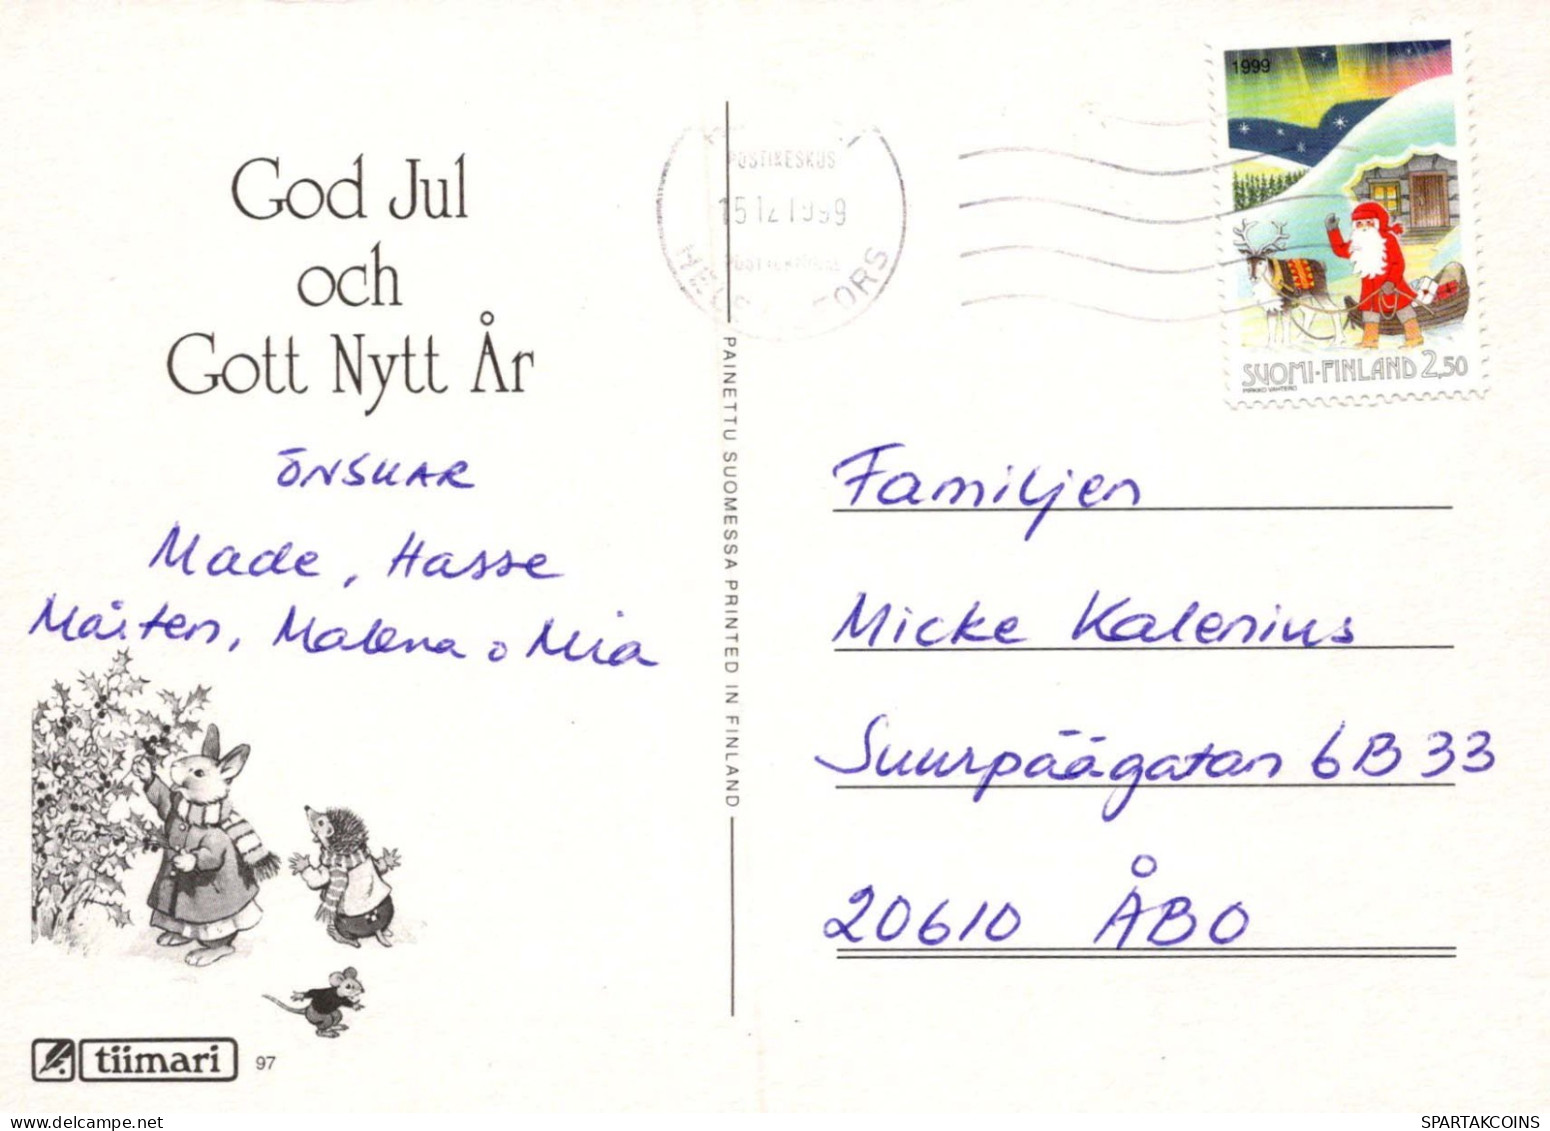 God Jul
och
Gott Nytt År
ÖNSKAR
Made, Hasse
Mårten, Malena o Mia
tiimari 97
PAINETTU SUOMESSA PRINTED IN FINLAND
POSTIKESKUS
15 12 1999
1999
SUOMI-FINLAND 2,50
Familjen
Micke Kalenius
Suurpäägatan 6B 33
20610 ÅBO
SPARTAKCOINS